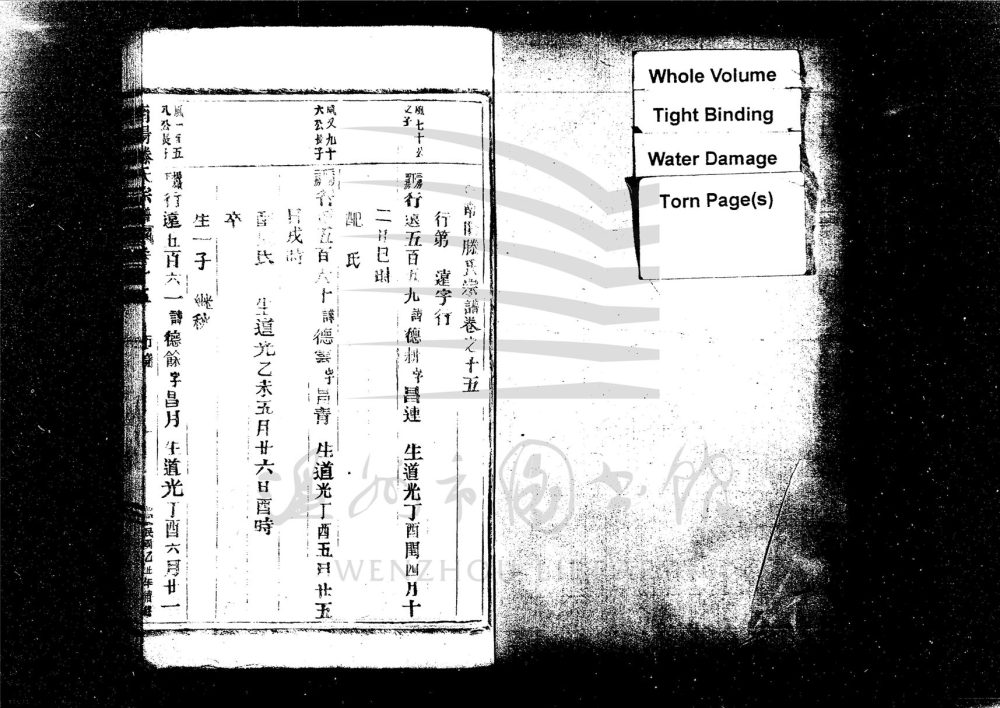 南陽滕氏宗譜卷之十五
行第 遠字行
鳳七十五
之子
行遠五百五九 諱德耕 字昌連 生道光丁酉閏四月十
二日巳時
配 氏
鳳又九十
六公長子
行遠五百六十 諱德雲 字昌青 生道光丁酉五月廿五
日戌時
配 氏 生道光乙未五月廿六日酉時
卒
生一子 繼秋
鳳一百五
八公長子
行遠五百六一 諱德餘 字昌月 生道光丁酉六月廿一
民國乙丑年
Whole Volume
Tight Binding
Water Damage
Torn Page(s)
溫州市圖書館
WENZHOU LIBRARY